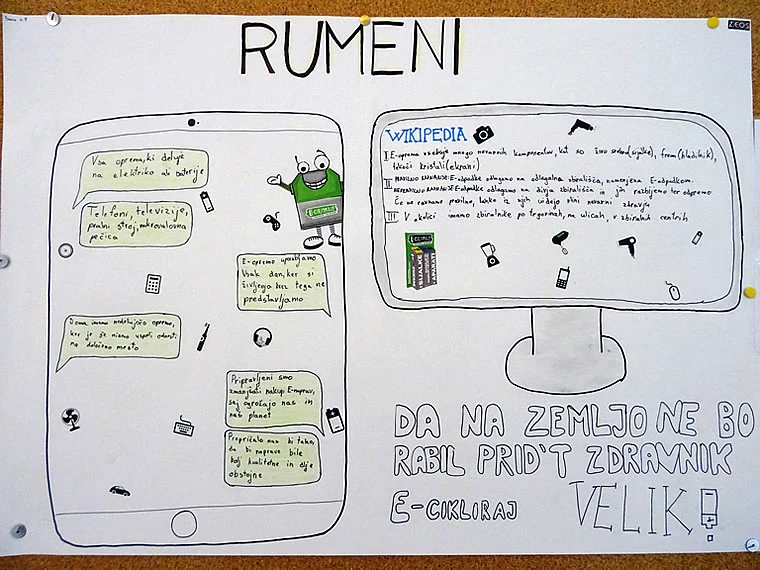 ZEOS
RUMENI
Vsa oprema, ki deluje
na elektriko ali baterije
Telefoni, televizije,
pralni stroj, mikrovalovna
pečica
E-CIKLIRAJ
E-opremo uporabljamo
vsak dan, ker si
življenja brez tega ne
predstavljamo
Doma imamo nedelujočo opremo,
ker je še nismo uspeli odnesti
na določeno mesto
Pripravljeni smo
zmanjšati nakup E-naprav,
saj ogrožajo nas in
naš planet
Prepričalo nas bi tako,
da bi naprave bile
bolj kvalitetne in dlje
obstojne
WIKIPEDIA
I. E-oprema vsebuje mnogo nevarnih komponentov, kot so živo srebro(sijalke), freon(hladilnik),
tekoči kristali(ekrani)
II. PRAVILNO RAVNANJE: E-odpadke odlagamo na odlagalna zbirališča, namenjena E-odpadkom.
NEPRAVILNO RAVNANJE: E-odpadke odlagamo na divja zbirališča in jih razbijemo ter odpremo
Če ne ravnamo pravilno, lahko iz njih uidejo plini nevarni zdravju
III. V okolici imamo zbiralnike po trgovinah, na ulicah, v zbirnih centrih
DA NA ZEMLJO NE BO
RABIL PRID'T ZDRAVNIK
E-CIKLIRAJ VELIK!